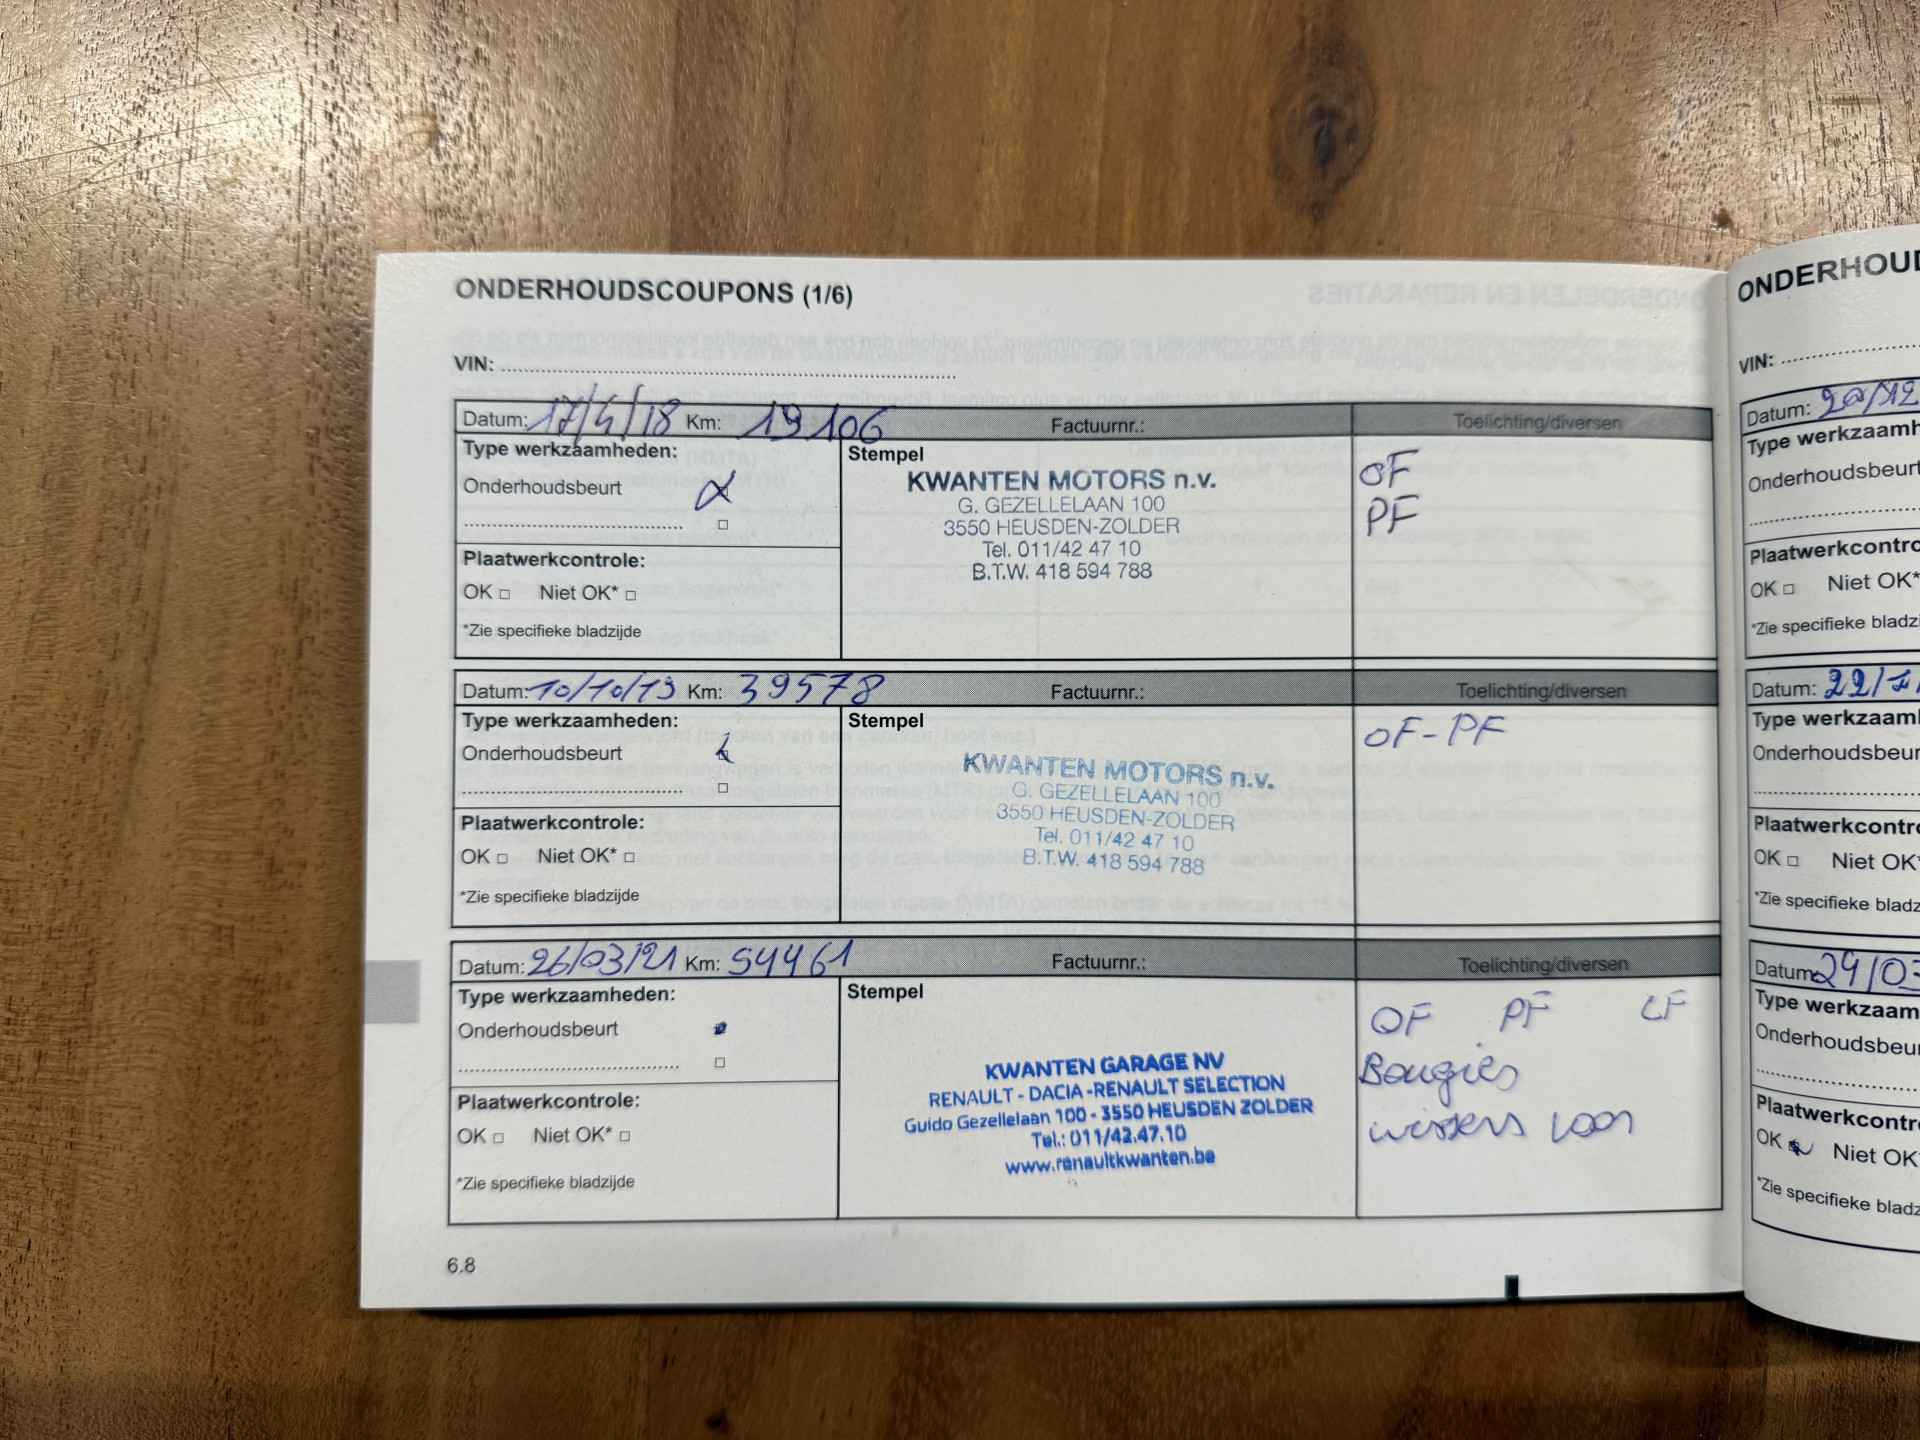 ONDERHOUDSCOUPONS (1/6)
VIN:
Datum: 17/4/18 Km: 19106 Factuurnr.: Toelichting/diversen
Type werkzaamheden:
Onderhoudsbeurt
Plaatwerkcontrole:
OK □ Niet OK* □
*Zie specifieke bladzijde
Stempel
KWANTEN MOTORS n.v.
G. GEZELLELAAN 100
3550 HEUSDEN-ZOLDER
Tel. 011/42 47 10
B.T.W. 418 594 788
OF
PF
Datum: 10/10/19 Km: 39578 Factuurnr.: Toelichting/diversen
Type werkzaamheden:
Onderhoudsbeurt
Plaatwerkcontrole:
OK □ Niet OK* □
*Zie specifieke bladzijde
Stempel
KWANTEN MOTORS n.v.
G. GEZELLELAAN 100
3550 HEUSDEN-ZOLDER
Tel. 011/42 47 10
B.T.W. 418 594 788
OF-PF
Datum: 26/03/21 Km: 54461 Factuurnr.: Toelichting/diversen
Type werkzaamheden:
Onderhoudsbeurt
Plaatwerkcontrole:
OK □ Niet OK* □
*Zie specifieke bladzijde
Stempel
KWANTEN GARAGE NV
RENAULT - DACIA - RENAULT SELECTION
Guido Gezellelaan 100 - 3550 HEUSDEN ZOLDER
Tel.: 011/42.47.10
www.renaultkwanten.be
OF PF LF
Bougies
wissers voor
6.8
ONDERHOUD
VIN:
Datum: 20/12
Type werkzaamh
Onderhoudsbeurt
Plaatwerkcontro
OK □ Niet OK*
*Zie specifieke bladzi
Datum: 22/
Type werkzaaml
Onderhoudsbeur
Plaatwerkcontro
OK □ Niet OK*
*Zie specifieke bladz
Datum: 24/03
Type werkzaam
Onderhoudsbeu
Plaatwerkcontr
OK Niet OK
*Zie specifieke bladz